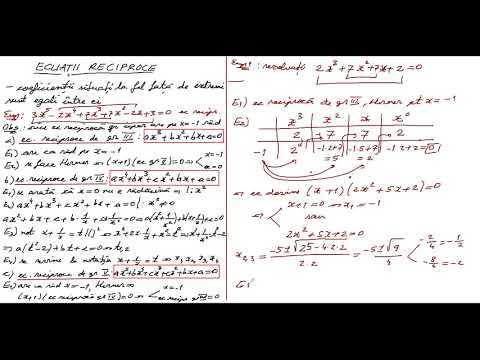 ECUAȚII RECIPROCE
- coeficienții situați la fel față de extremi
sunt egali între ei
Exp: 3x⁵-2x⁴+7x³+7x²-2x+3=0 ec recipr.
Obs: orice ec reciprocă de grad impar are pe x=-1 răd
a) ec. reciproce de gr III: ax³+bx²+bx+a=0
E₁) are ca răd pe x=-1
E₂) se face Horner ⇒ (x+1)(ec gr II)=0 ⇒ x=-1
b) ec. reciproce de gr IV: ax⁴+bx³+cx²+bx+a=0
E₁) se arată că x=0 nu e rădăcină ⇒ |:x²
E₂) ax⁴+bx³+cx²+bx+a=0 |:x² ≠0
ax²+bx+c+b·1/x+a·1/x²=0 ⇒ a(x²+1/x²)+b(x+1/x)+c=0
E₃) not x+1/x=t |()² ⇒ x²+2+1/x²=t² ⇒ x²+1/x²=t²-2
⇒ a(t²-2)+bt+c=0 ⇒ t₁,₂
E₄) se revine la notația x+1/x=t ⇒ x₁,x₂,x₃,x₄
c) ec. reciproce de gr V: ax⁵+bx⁴+cx³+cx²+bx+a=0
E₁) are ca răd x=-1, Horner ⇒
(x+1)(ec reciprocă gr IV)=0 ⇒ x=-1
ec recipr gr IV=0
Exp: rezolvați 2x³+7x²+7x+2=0
E₁) ec reciprocă de gr III, Horner pt x=-1
E₂) x³ x² x x⁰
2 7 7 2
-1 2 -1·2+7 -1·5+7 -1·2+2=0
=5 =2
⇒ ec devine (x+1)(2x²+5x+2)=0
⇒ x+1=0 ⇒ x₁=-1
sau
2x²+5x+2=0
x₂,₃= -5±√25-4·2·2 / 2·2 = -5±√9 / 4 -2/4=-1/2
-8/4=-2